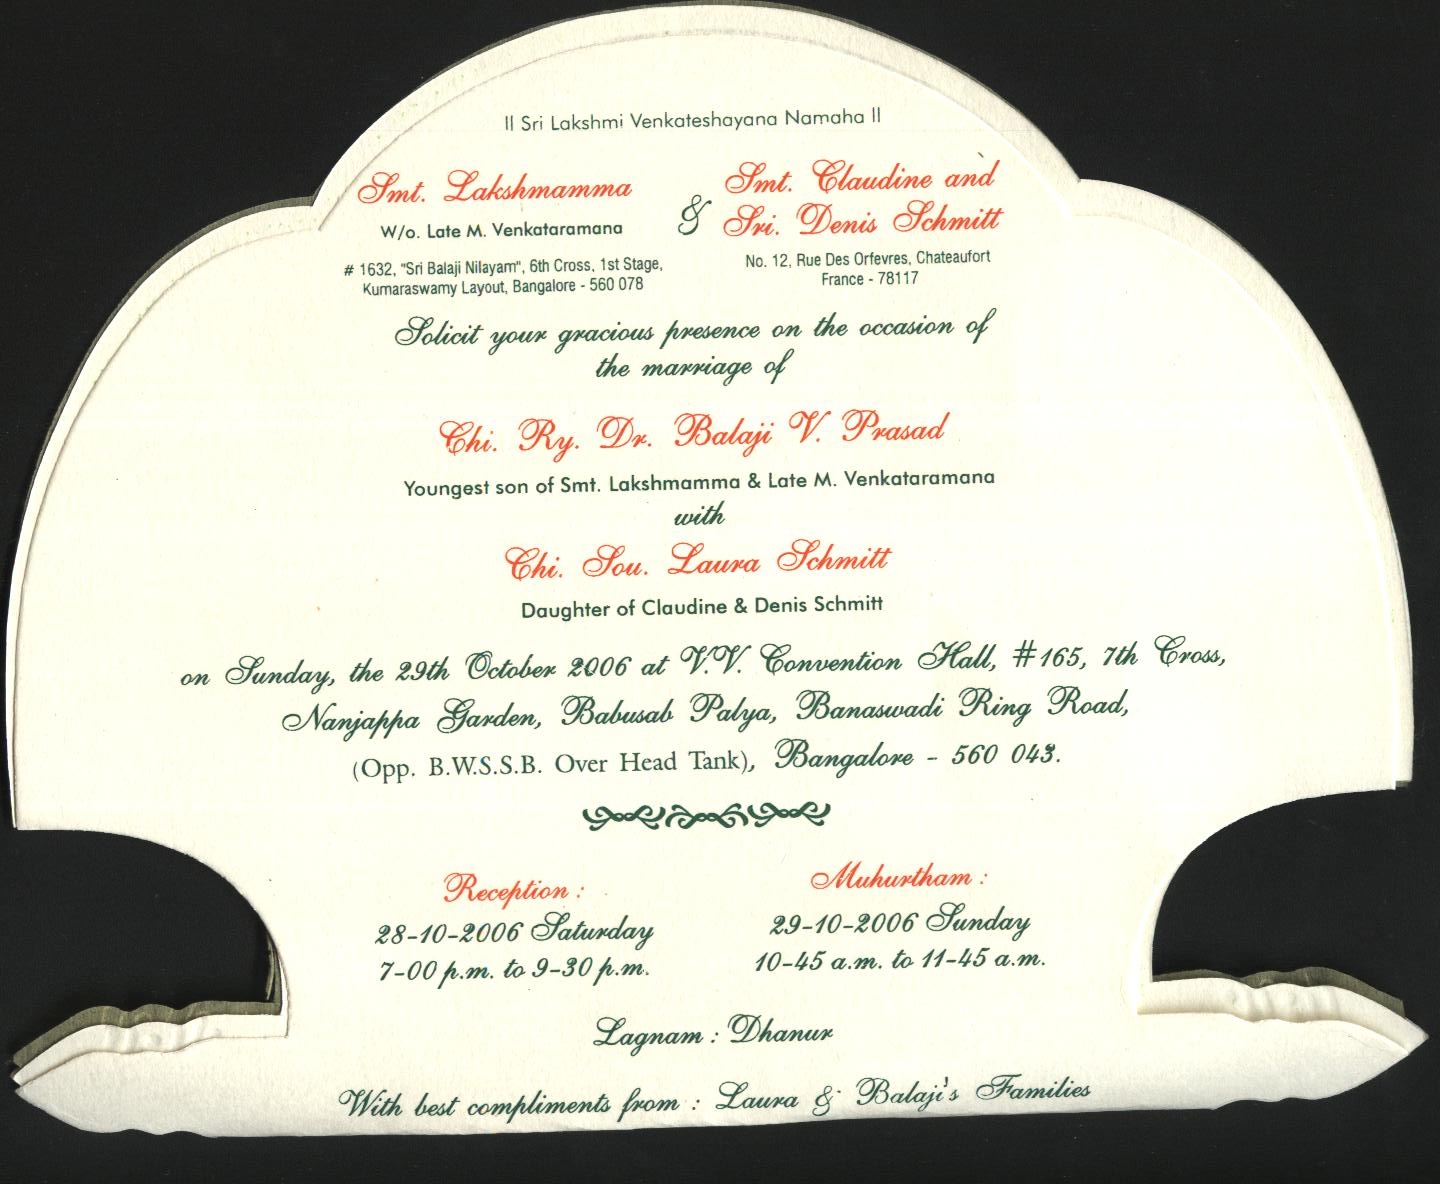 || Sri Lakshmi Venkateshayana Namaha ||
Smt. Lakshmamma
W/o. Late M. Venkataramana
# 1632, "Sri Balaji Nilayam", 6th Cross, 1st Stage,
Kumaraswamy Layout, Bangalore - 560 078
&
Smt. Claudine and
Sri. Denis Schmitt
No. 12, Rue Des Orfevres, Chateaufort
France - 78117
Solicit your gracious presence on the occasion of
the marriage of
Chi. Ry. Dr. Balaji V. Prasad
Youngest son of Smt. Lakshmamma & Late M. Venkataramana
with
Chi. Sou. Laura Schmitt
Daughter of Claudine & Denis Schmitt
on Sunday, the 29th October 2006 at V.V. Convention Hall, #165, 7th Cross,
Nanjappa Garden, Babusab Palya, Banaswadi Ring Road,
(Opp. B.W.S.S.B. Over Head Tank), Bangalore - 560 043.
Reception :
28-10-2006 Saturday
7-00 p.m. to 9-30 p.m.
Muhurtham :
29-10-2006 Sunday
10-45 a.m. to 11-45 a.m.
Lagnam : Dhanur
With best compliments from : Laura & Balaji's Families